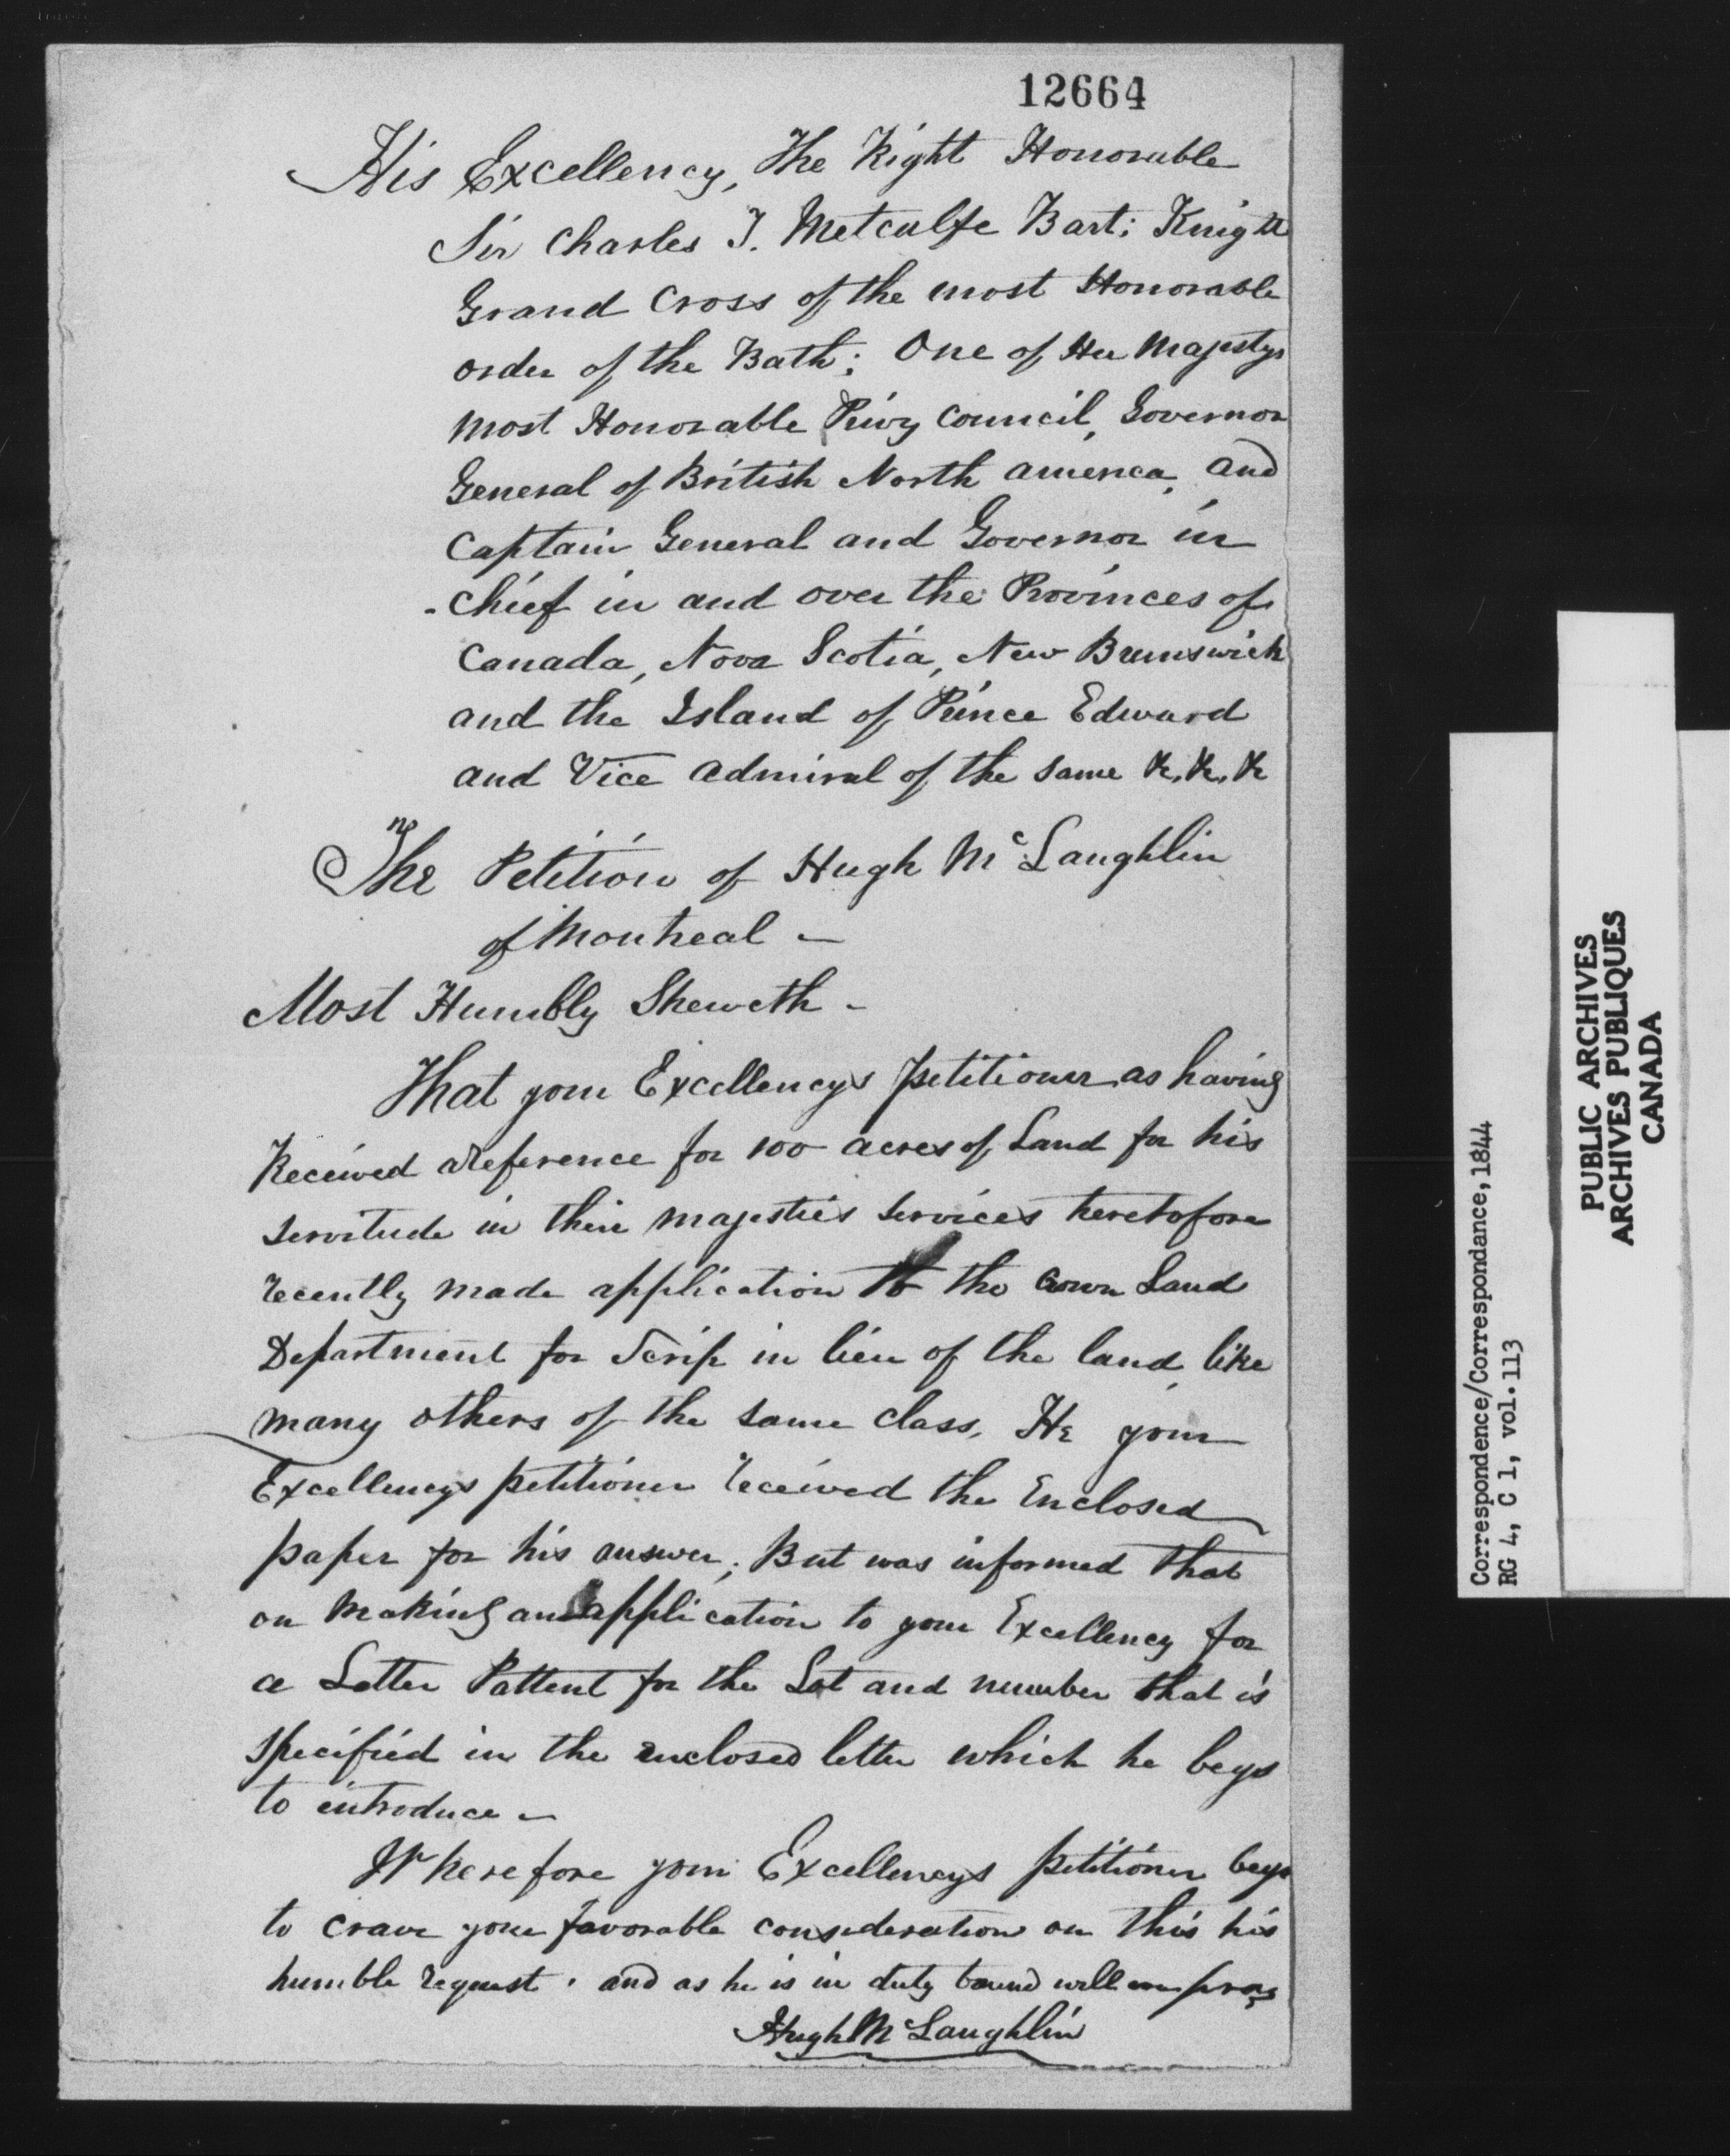 12664
His Excellency, The Right Honorable
Sir Charles T. Metcalfe Bart; Knight
Grand Cross of the most Honorable
order of the Bath; One of Her Majestys
most Honorable Privy Council, Governor
General of British North america, and
Captain General and Governor in
-Chief in and over the Provinces of
Canada, Nova Scotia, New Brunswick
and the Island of Prince Edward
and Vice admiral of the same &c, &c, &c
The Petition of Hugh McLaughlin
of Montreal -
Most Humbly Sheweth -
That your Excellencys petitioner as having
Received a Reference for 100 acres of Land for his
servitude in their majesties services heretofore
recently made application to the Crown Land
Department for Scrip in lieu of the land, like
many others of the same class, He your
Excellencys petitioner received the Enclosed
paper for his answer; But was informed that
on making an application to your Excellency for
a Letter Pattent for the Lot and number that is
specified in the enclosed letter which he begs
to introduce -
Wherefore your Excellencys petitioner begs
to crave your favorable consideration on this his
humble request. and as he is in duty bound will pray
Hugh McLaughlin
Correspondence/Correspondance, 1844
RG 4, C 1, vol. 113
PUBLIC ARCHIVES
ARCHIVES PUBLIQUES
CANADA